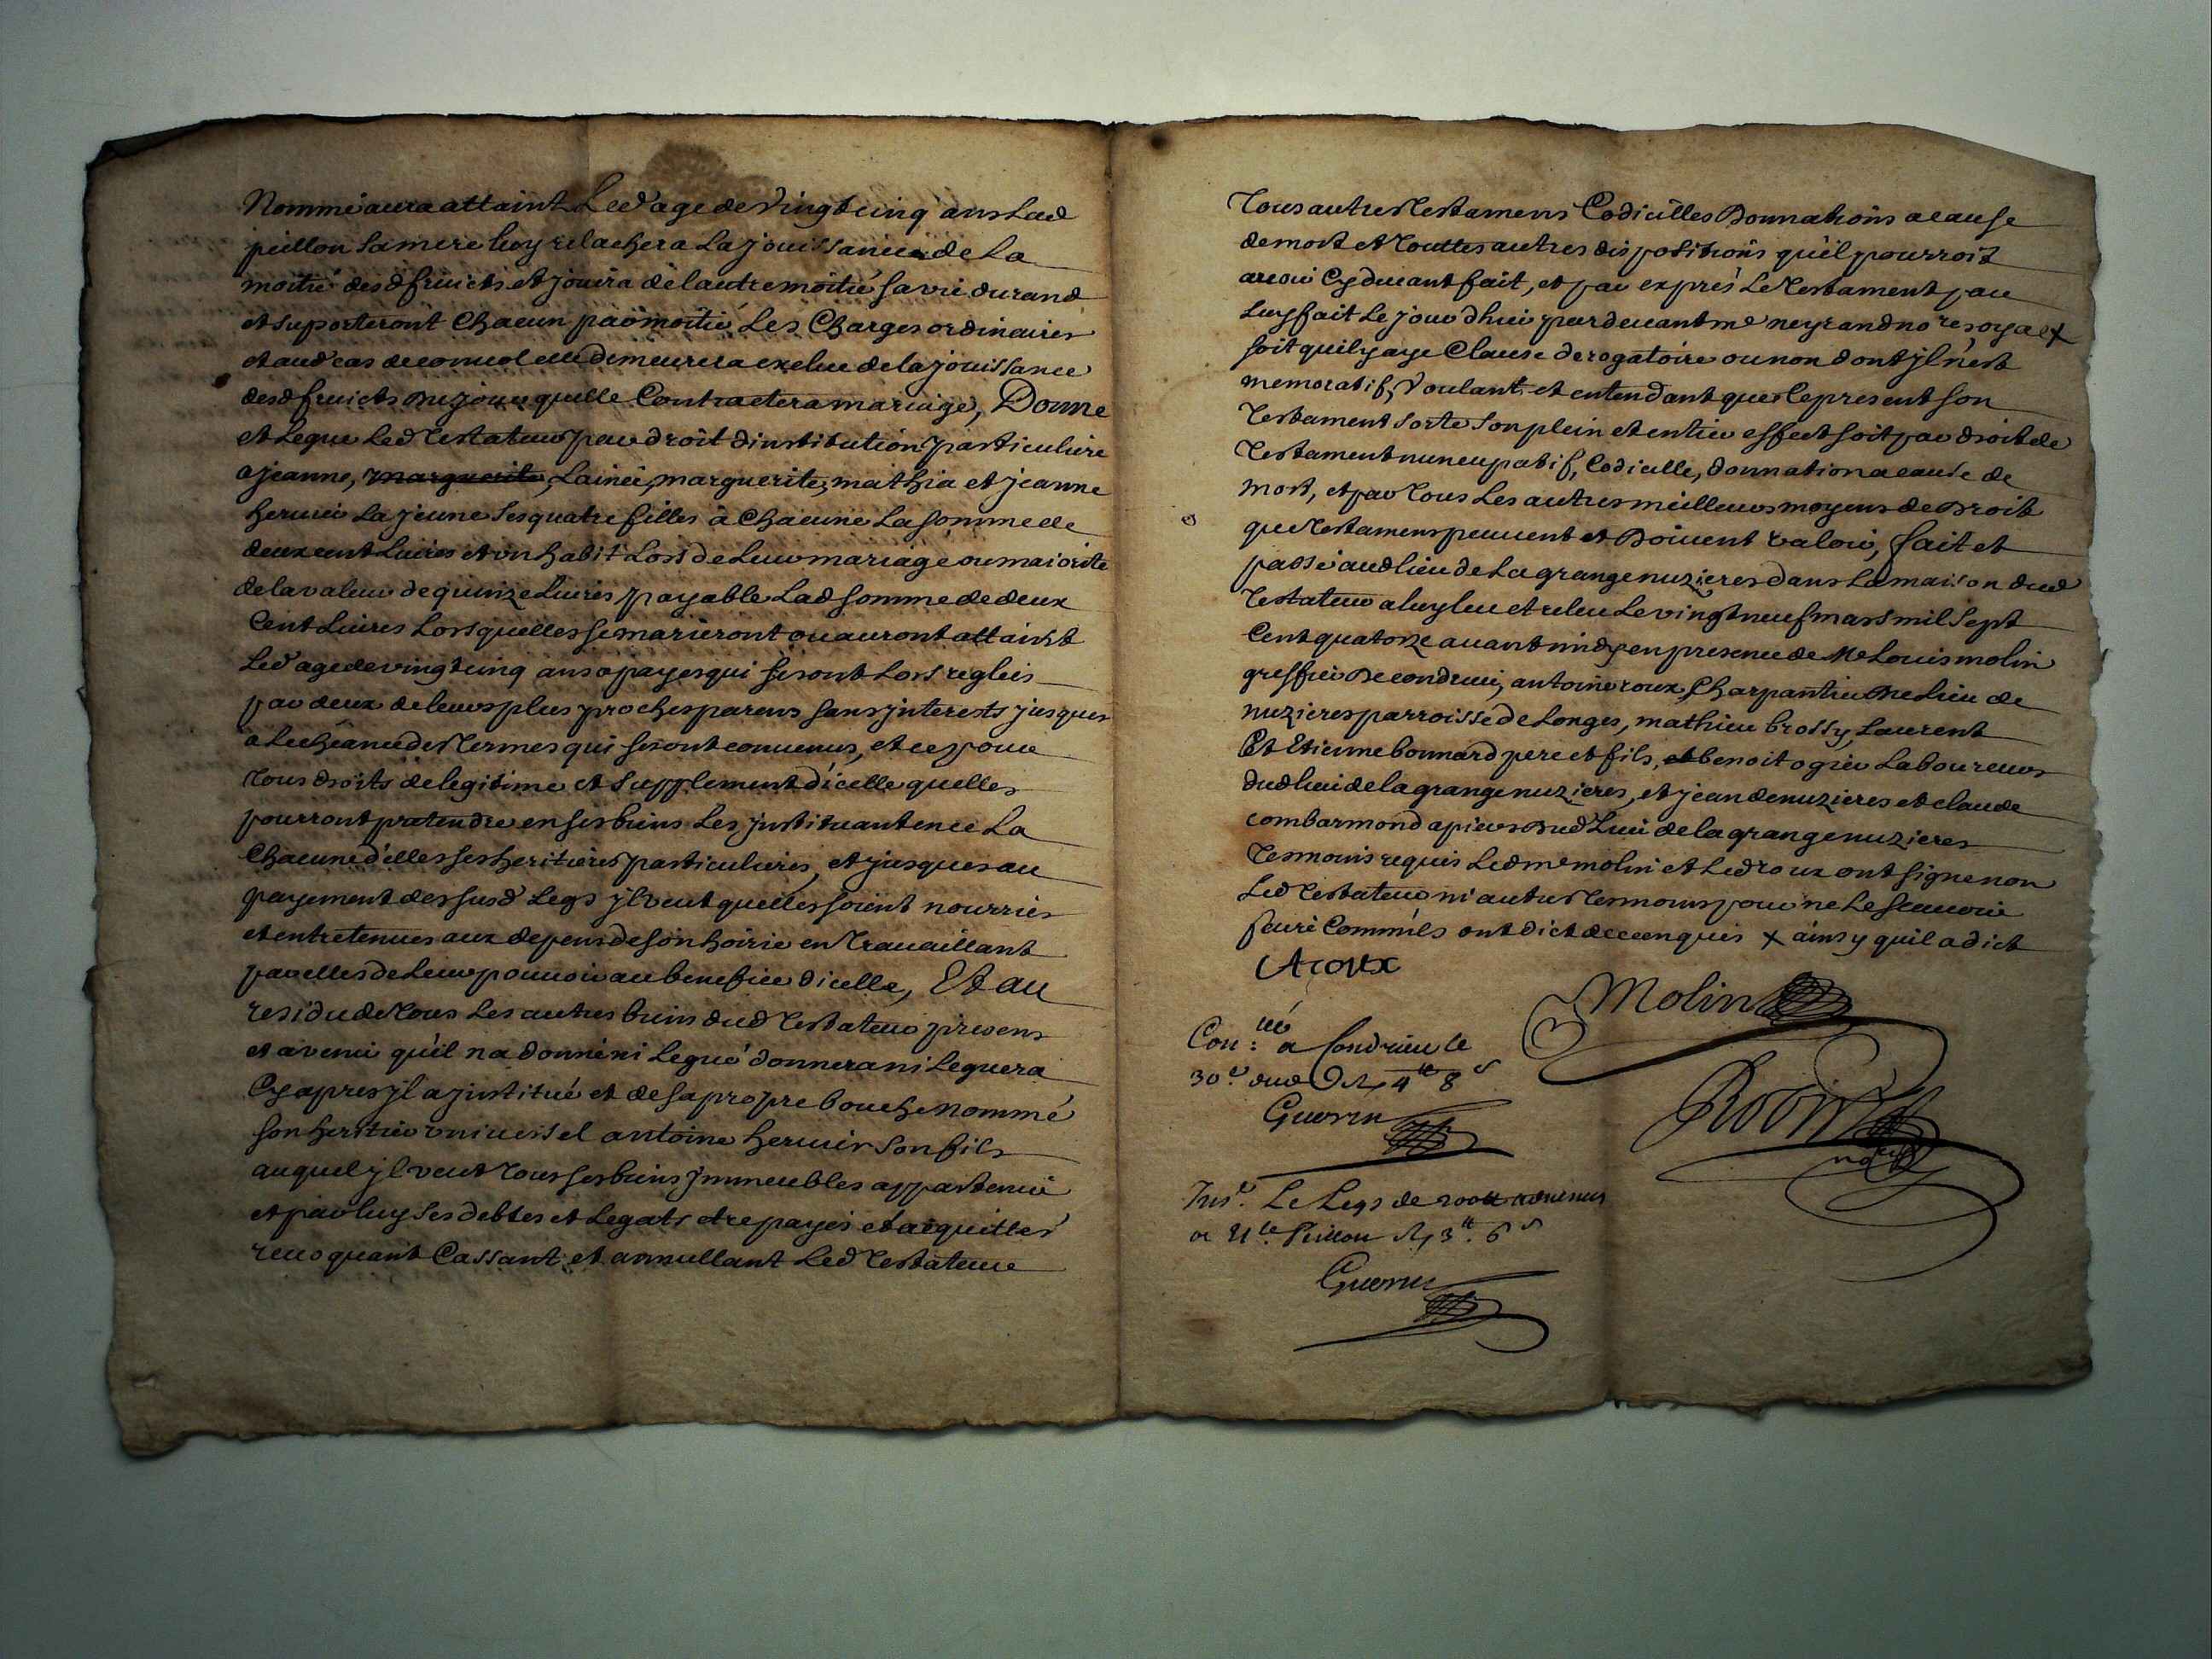 Nommé aura attaint Led age de Vingt cinq ans Lad
peillon Sa mere luy relachera La jouissance de La
moitié desd fruicts et jouira de lautre moitié sa vie durand
et suporteront Chacun par moitié Les Charges ordinaires
et aud cas de convol elle demeurera exclue de la jouissance
desd fruicts Du jour quelle Contractera mariage, Donne
et Legue Led Testateur par droit dinstitution particuliere
a jeanne, marguerite, Lainée, marguerite, mathia et jeanne
hervier La jeune Ses quatre filles à Chacune La somme de
deux cent Livres et un habit Lors de Leur mariage ou maiorite
de la valeur de quinze Livres payable Lad somme de deux
Cent Livres Lors quelles se marieront ou auront attaint
Led age de vingt cinq ans a payes qui seront Lors reglés
par deux de leurs plus proches parens sans jnterests jusques
a Lecheance des Termes qui seront convenus, et ce pour
Tous droits de legitime et supplement dicelle quelles
pourront pretendre en ses biens Les jnstituant en ce La
Chacune d'elles ses heritieres particulieres, et jusques au
payement des susd Legs jl veut quelles soient nourries
et entretenues aux depens de son hoirie en Travaillant
par elles de Leur pouvoir au benefice dicelle, Et au
residu de Tous Les autres biens dud Testateur presens
et avenir qu'il na donné ni Legué donnera ni Leguera
Cy apres jl a jnstitué et de sa propre bouche nommé
son heritier universel antoine hervier Son fils
auquel jl veut Tous ses biens Jmmeubles appartenir
et par luy Ses debtes et Legats etre payés et acquittes
revoquant Cassant et annullant Led Testateur
Tous autres Testamens Codicilles Donnations a cause
de mort et Touttes autres dispositions qu'il pourroit
avoir Cy devant fait, et par exprés Le Testament par
Luy fait Le jour dhui par devant me neyrand no re royal x
soit quil y aye Clause derogatoire ou non dont jl n'est
memoratif, Voulant et entendant que Le present son
Testament sorte Son plein et entier effect soit par droit de
Testament nuncupatif, Codicille, donnation a cause de
mort, et par Tous Les autres meilleurs moyens de Droit
que Testamens peuvent et Doivent valoir, fait et
passé aud lieu de La grange nuzieres dans La maison dud
Testateur a luy leu et releu Le vingt neuf mars mil Sept
Cent quatorze avant midy en presence de Me Louis molin
greffier De condrieu, antoine roux Charpantier Du Lieu de
nuzieres parroisse de Longes, mathieu brossy, Laurent
Et Etienne bonnard pere et fils, et benoit ogier Laboureurs
Dud lieu de la grange nuzieres, et jean de nuzieres et claude
combarmond apiers Dud Lieu de la grange nuzieres
Tesmoins requis Led me molin et Led roux ont signe non
Led Testateur ni autres Tesmoins pour ne Le scavoir
faire Comm'ils ont dict de ce enquis x ainsy quil a dict
A roux
Molin
Con: lé a Condrieu le
30e dud R 4 tt 8 s
Guerin
Robin
no re
Ins.é Le Legs de 200 tt
a Peillon R 3 tt. 6 s
Guerin